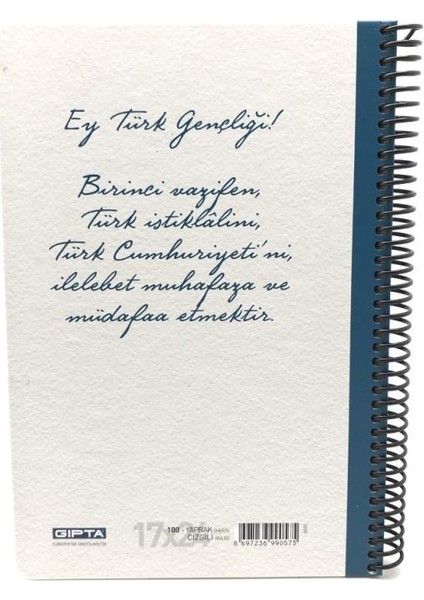 Ey Türk Gençliği!
Birinci vazifen,
Türk istiklâlini,
Türk Cumhuriyeti'ni,
ilelebet muhafaza ve
müdafaa etmektir.
GIPTA
17x24
100 - YAPRAK SHEETS
ÇİZGİLİ RULED
8 697236 990575